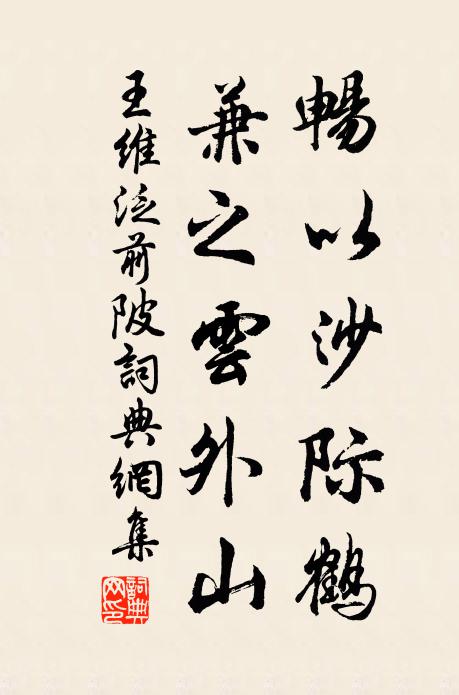 暢以沙际鶴
兼之雲外山
王維泛前陂詞典網集
詞典網印